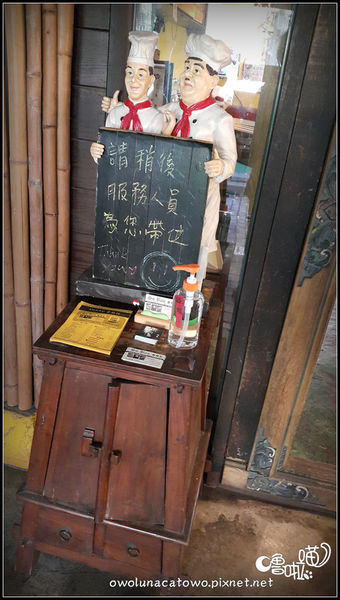 請稍後
服務人員
為您帶位
Thank
you
噜啦喵
owolunacatowo.pixnet.net